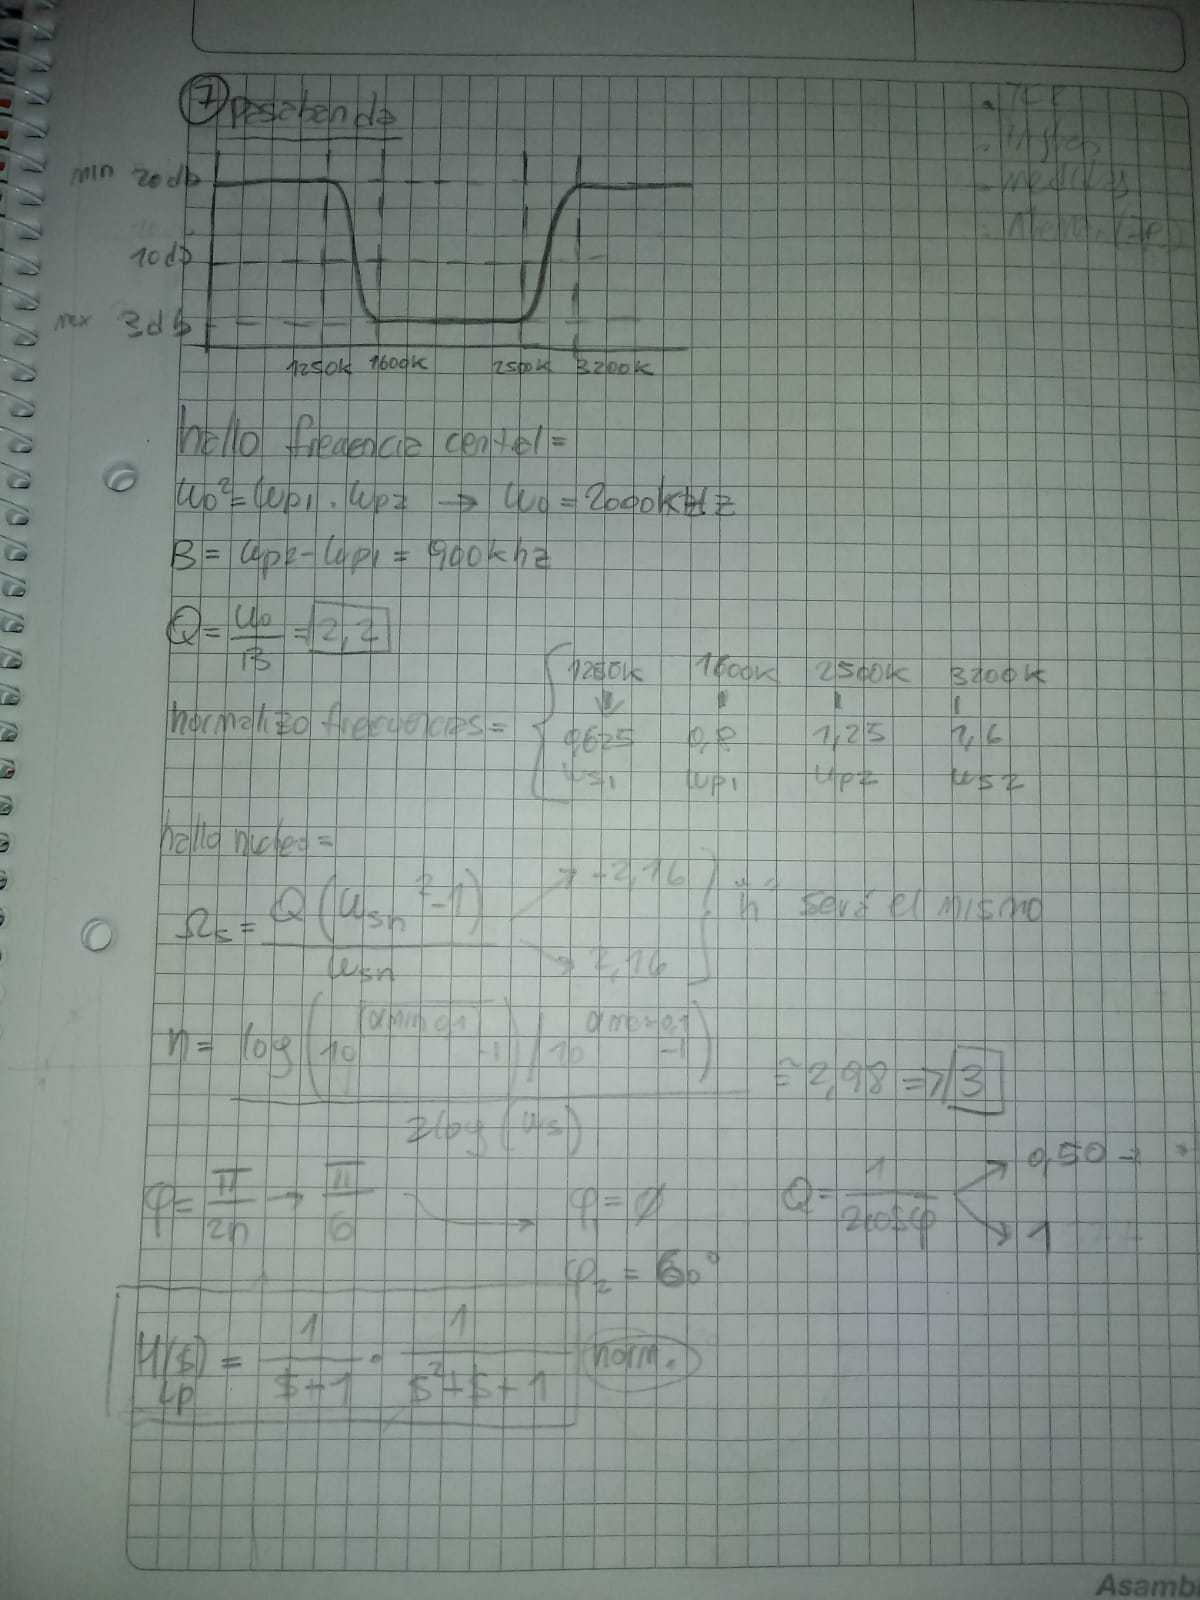 7 pasabanda
min 20db
10db
max 3db
1250k 1600k 2500k 3200k
hallo frecuencia central =
ω0² = ωp1 . ωp2 → ω0 = 2000kHz
B = ωp2 - ωp1 = 900khz
Q = ω0/B = 2,2
normalizo frecuencias =
1250k 1600k 2500k 3200k
0,625 0,8 1,25 1,6
ωs1 ωp1 ωp2 ωs2
hallo nucleo =
Ωs = Q(ωsn² - 1)/ωsn → -2,16 → 2,16 "n" será el mismo
n = log((10^(αmin 0,1) - 1)/(10^(αmax 0,1) - 1))/2log(ωs) ≅ 2,98 => 3
φ = π/2n → π/6 → φ1 = 0
φ2 = 60°
Q = 1/2cosφ → 0,50 → 1
H($)LP = 1/($+1) . 1/($²+$+1) norm.
Asamb